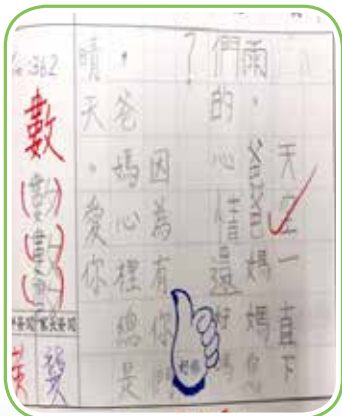 天空一直下
雨，爸爸媽媽您
們的心情還好嗎
？
因為有你們
，爸媽心裡總是
晴天。愛你
362
數
(數)
(數)
(數)
家長簽閱